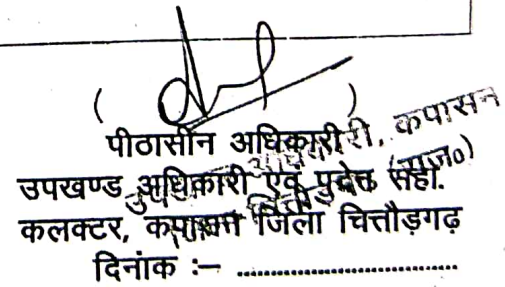 (                    )
पीठासीन अधिकारी
उपखण्ड अधिकारी एवं पदेन सहा.
कलक्टर, कपासन जिला चित्तौड़गढ़
दिनांक :– ................................
कपासन
(राज०)